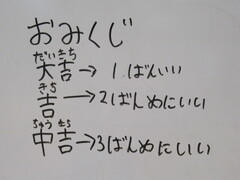 おみくじ
だいきち
大吉→1ばんいい
きち
吉→2ばんめにいい
ちゅうきち
中吉→3ばんめにいい